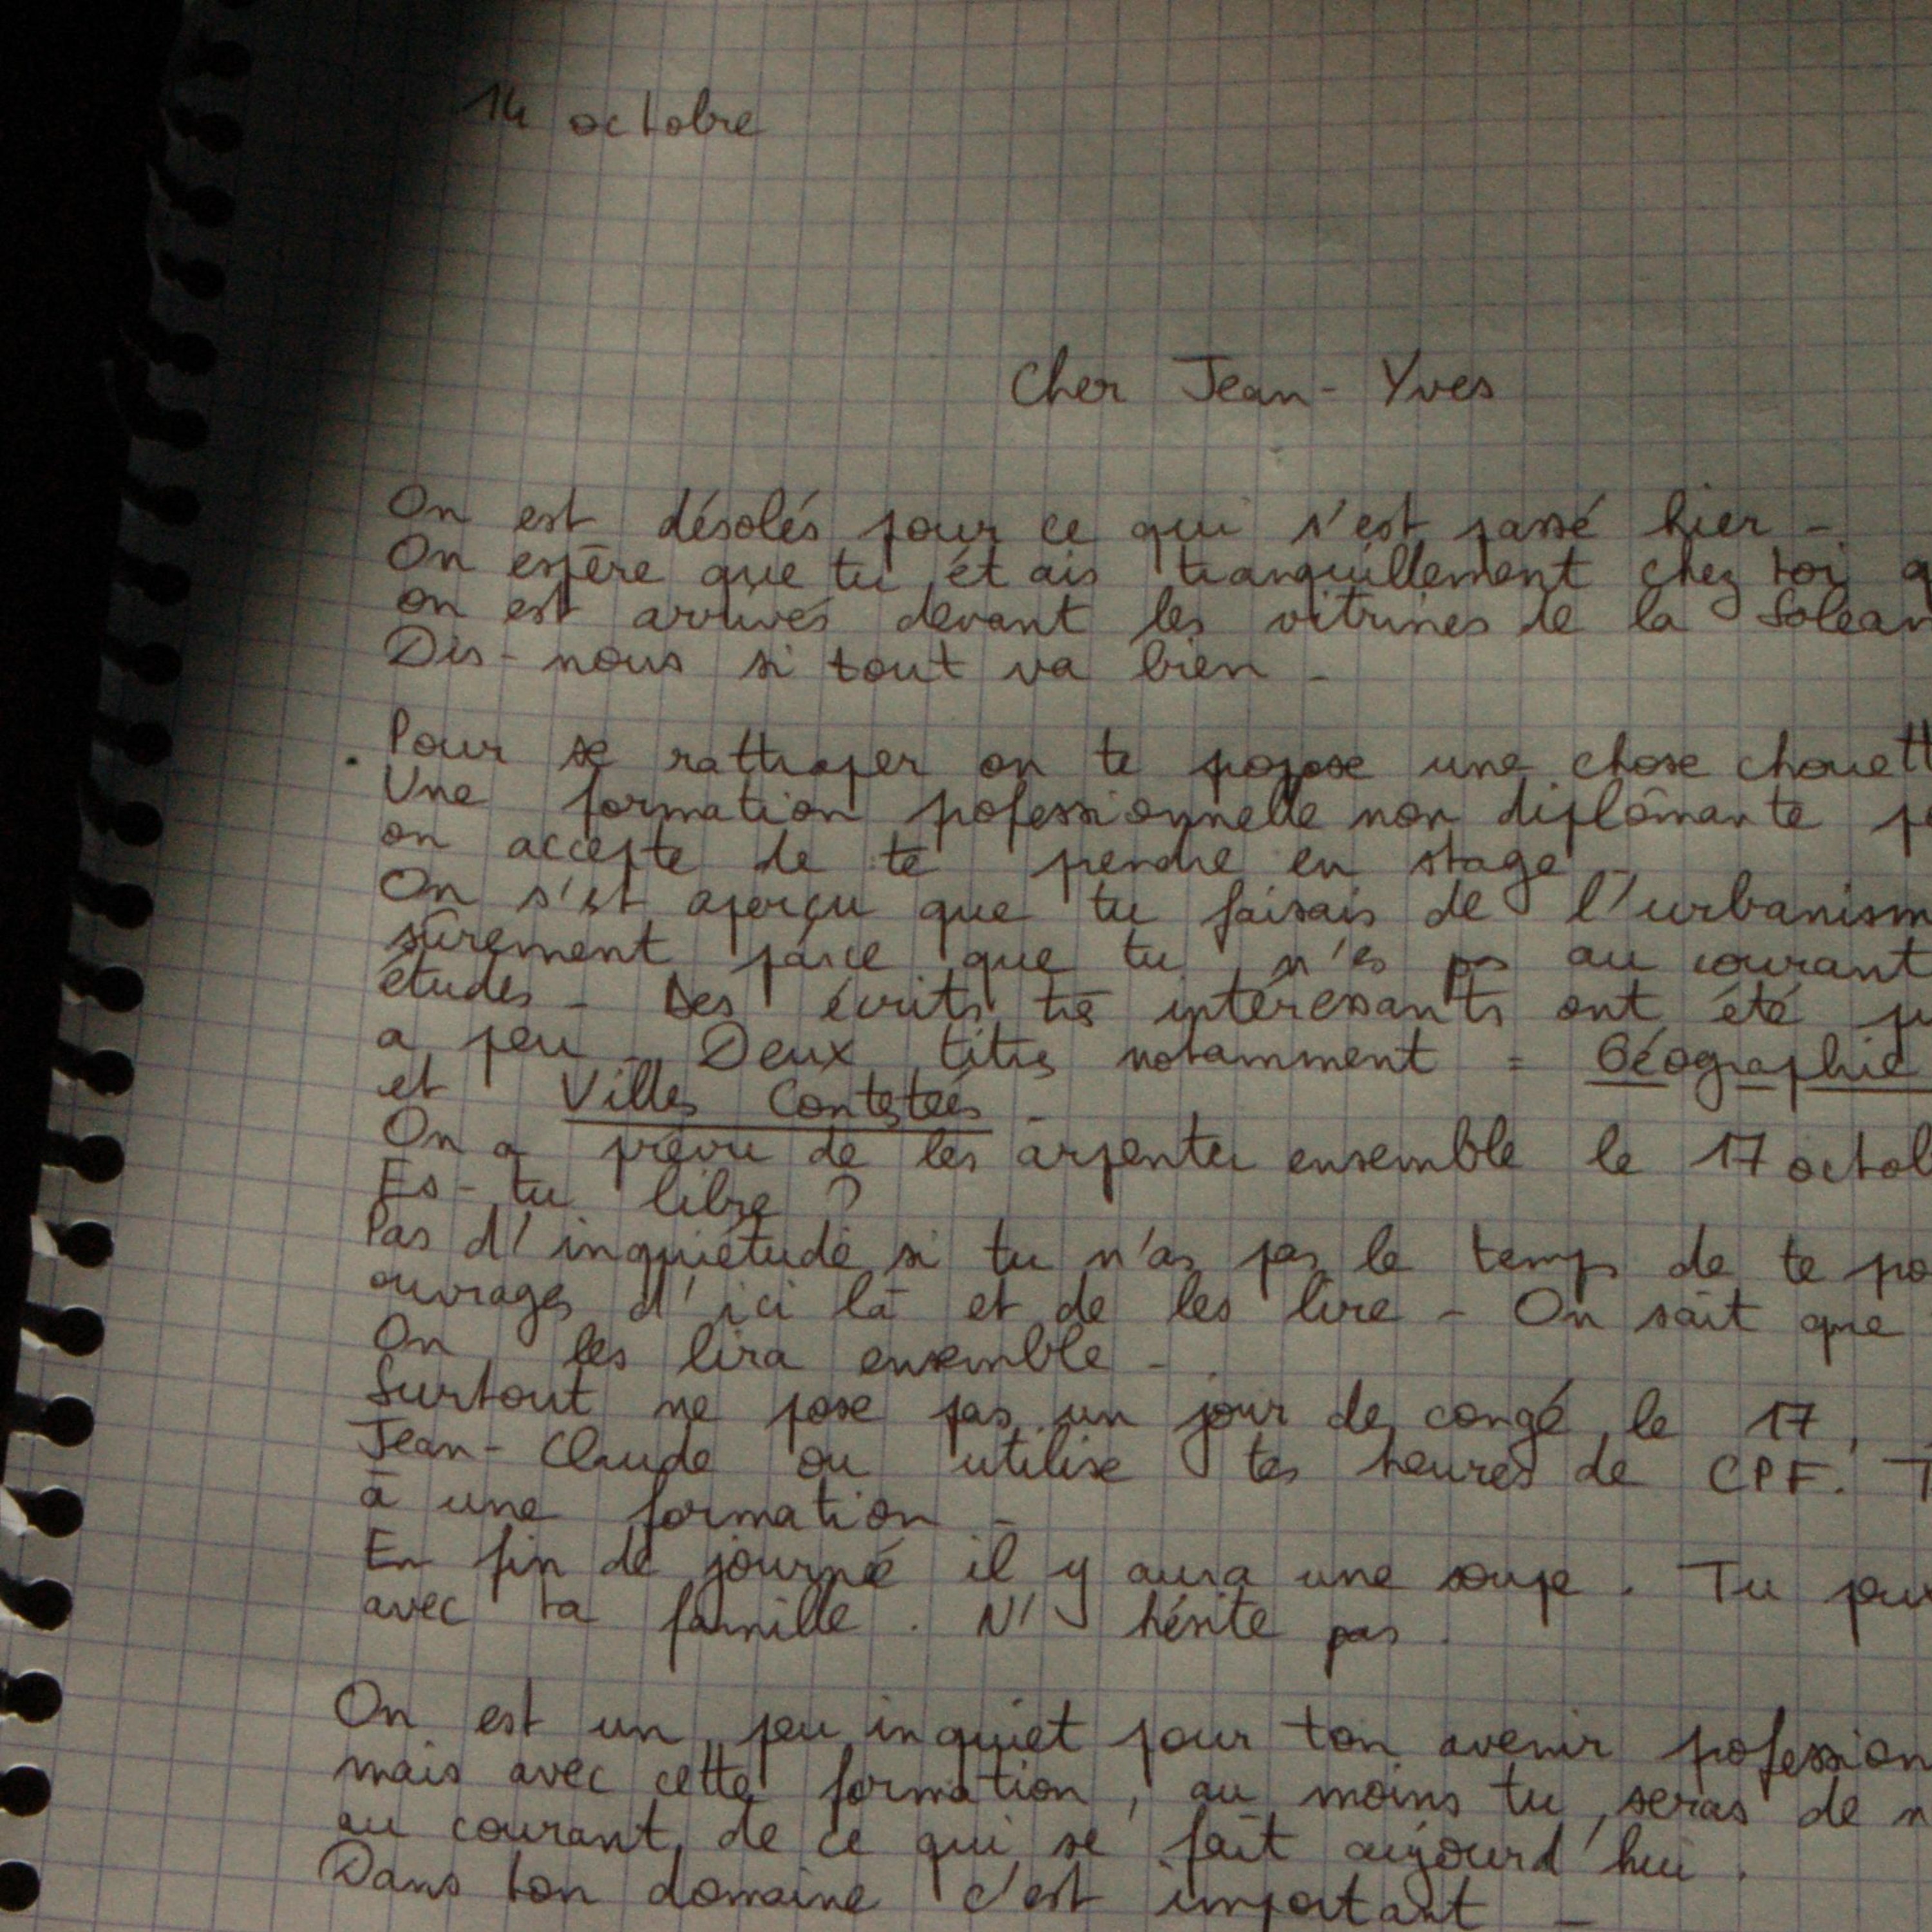 14 octobre
Cher Jean-Yves
On est désolés pour ce qui s'est passé hier -
On espère que tu étais tranquillement chez toi q
on est arrivés devant les vitrines de la Solear
Dis-nous si tout va bien -
Pour se rattraper on te propose une chose chouett
Une formation pofessionnelle non diplômante p
on accepte de te pendre en stage -
On s'est aperçu que tu faisais de l'urbanism
sûrement parce que tu n'es pas au courant
études - Des écrits trè intéressants ont été pu
a peu - Deux titres notamment = Géographie
et Villes Contestées -
On a prévu de les arpenter ensemble le 17 octob
Es-tu libre ?
Pas d'inquiétude si tu n'as pas le temps de te po
ouvrages d'ici là et de les lire - On sait que
On les lira ensemble -
Surtout ne pose pas un jour de congé le 17,
Jean-Claude ou utilise tes heures de CPF. T
à une formation -
En fin de journée il y aura une soupe. Tu peu
avec ta famille. N'hésite pas.
On est un peu inquiet pour ton avenir pofession
mais avec cette formation, au moins tu seras de n
au courant de ce qui se fait aujourd'hui.
Dans ton domaine c'est important -